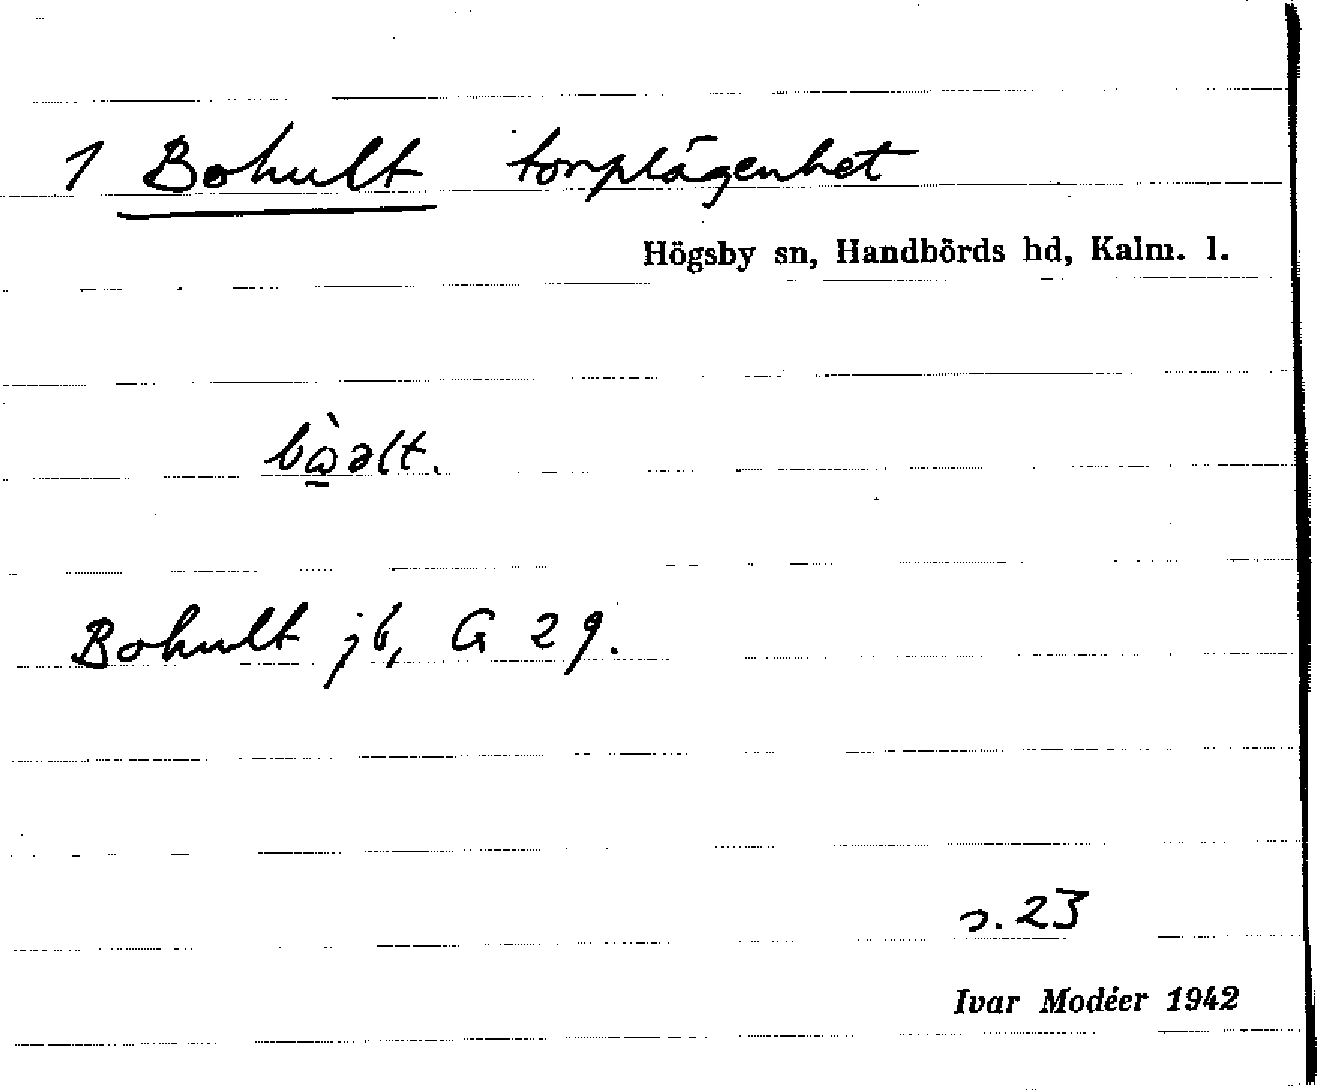 1 Bohult torplägenhet
Högsby sn, Handbörds hd, Kalm. l.
Bohult jb, G 29.
s. 23
Ivar Modéer 1942